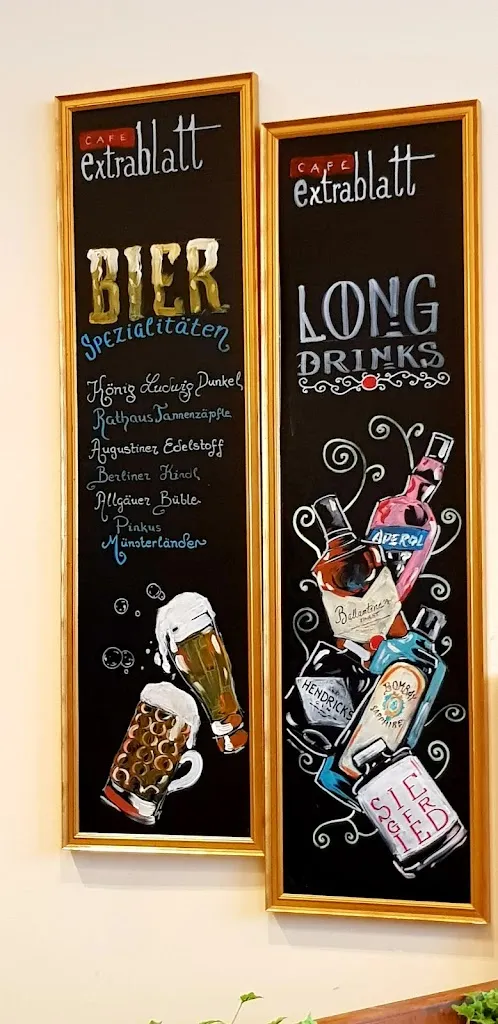 CAFE
extrablatt
BIER
SPEZIALITÄTEN
König Ludwig Dunkel
Rathaus Tannenzäpfle
Augustiner Edelstoff
Berliner Kindl
Allgäuer Büble
Pinkus
Münsterländer
CAFE
extrablatt
LONG
DRINKS
APEROL
Ballantine's
HENDRICK'S
BOMBAY
SAPPHIRE
SIE
GFR
IED